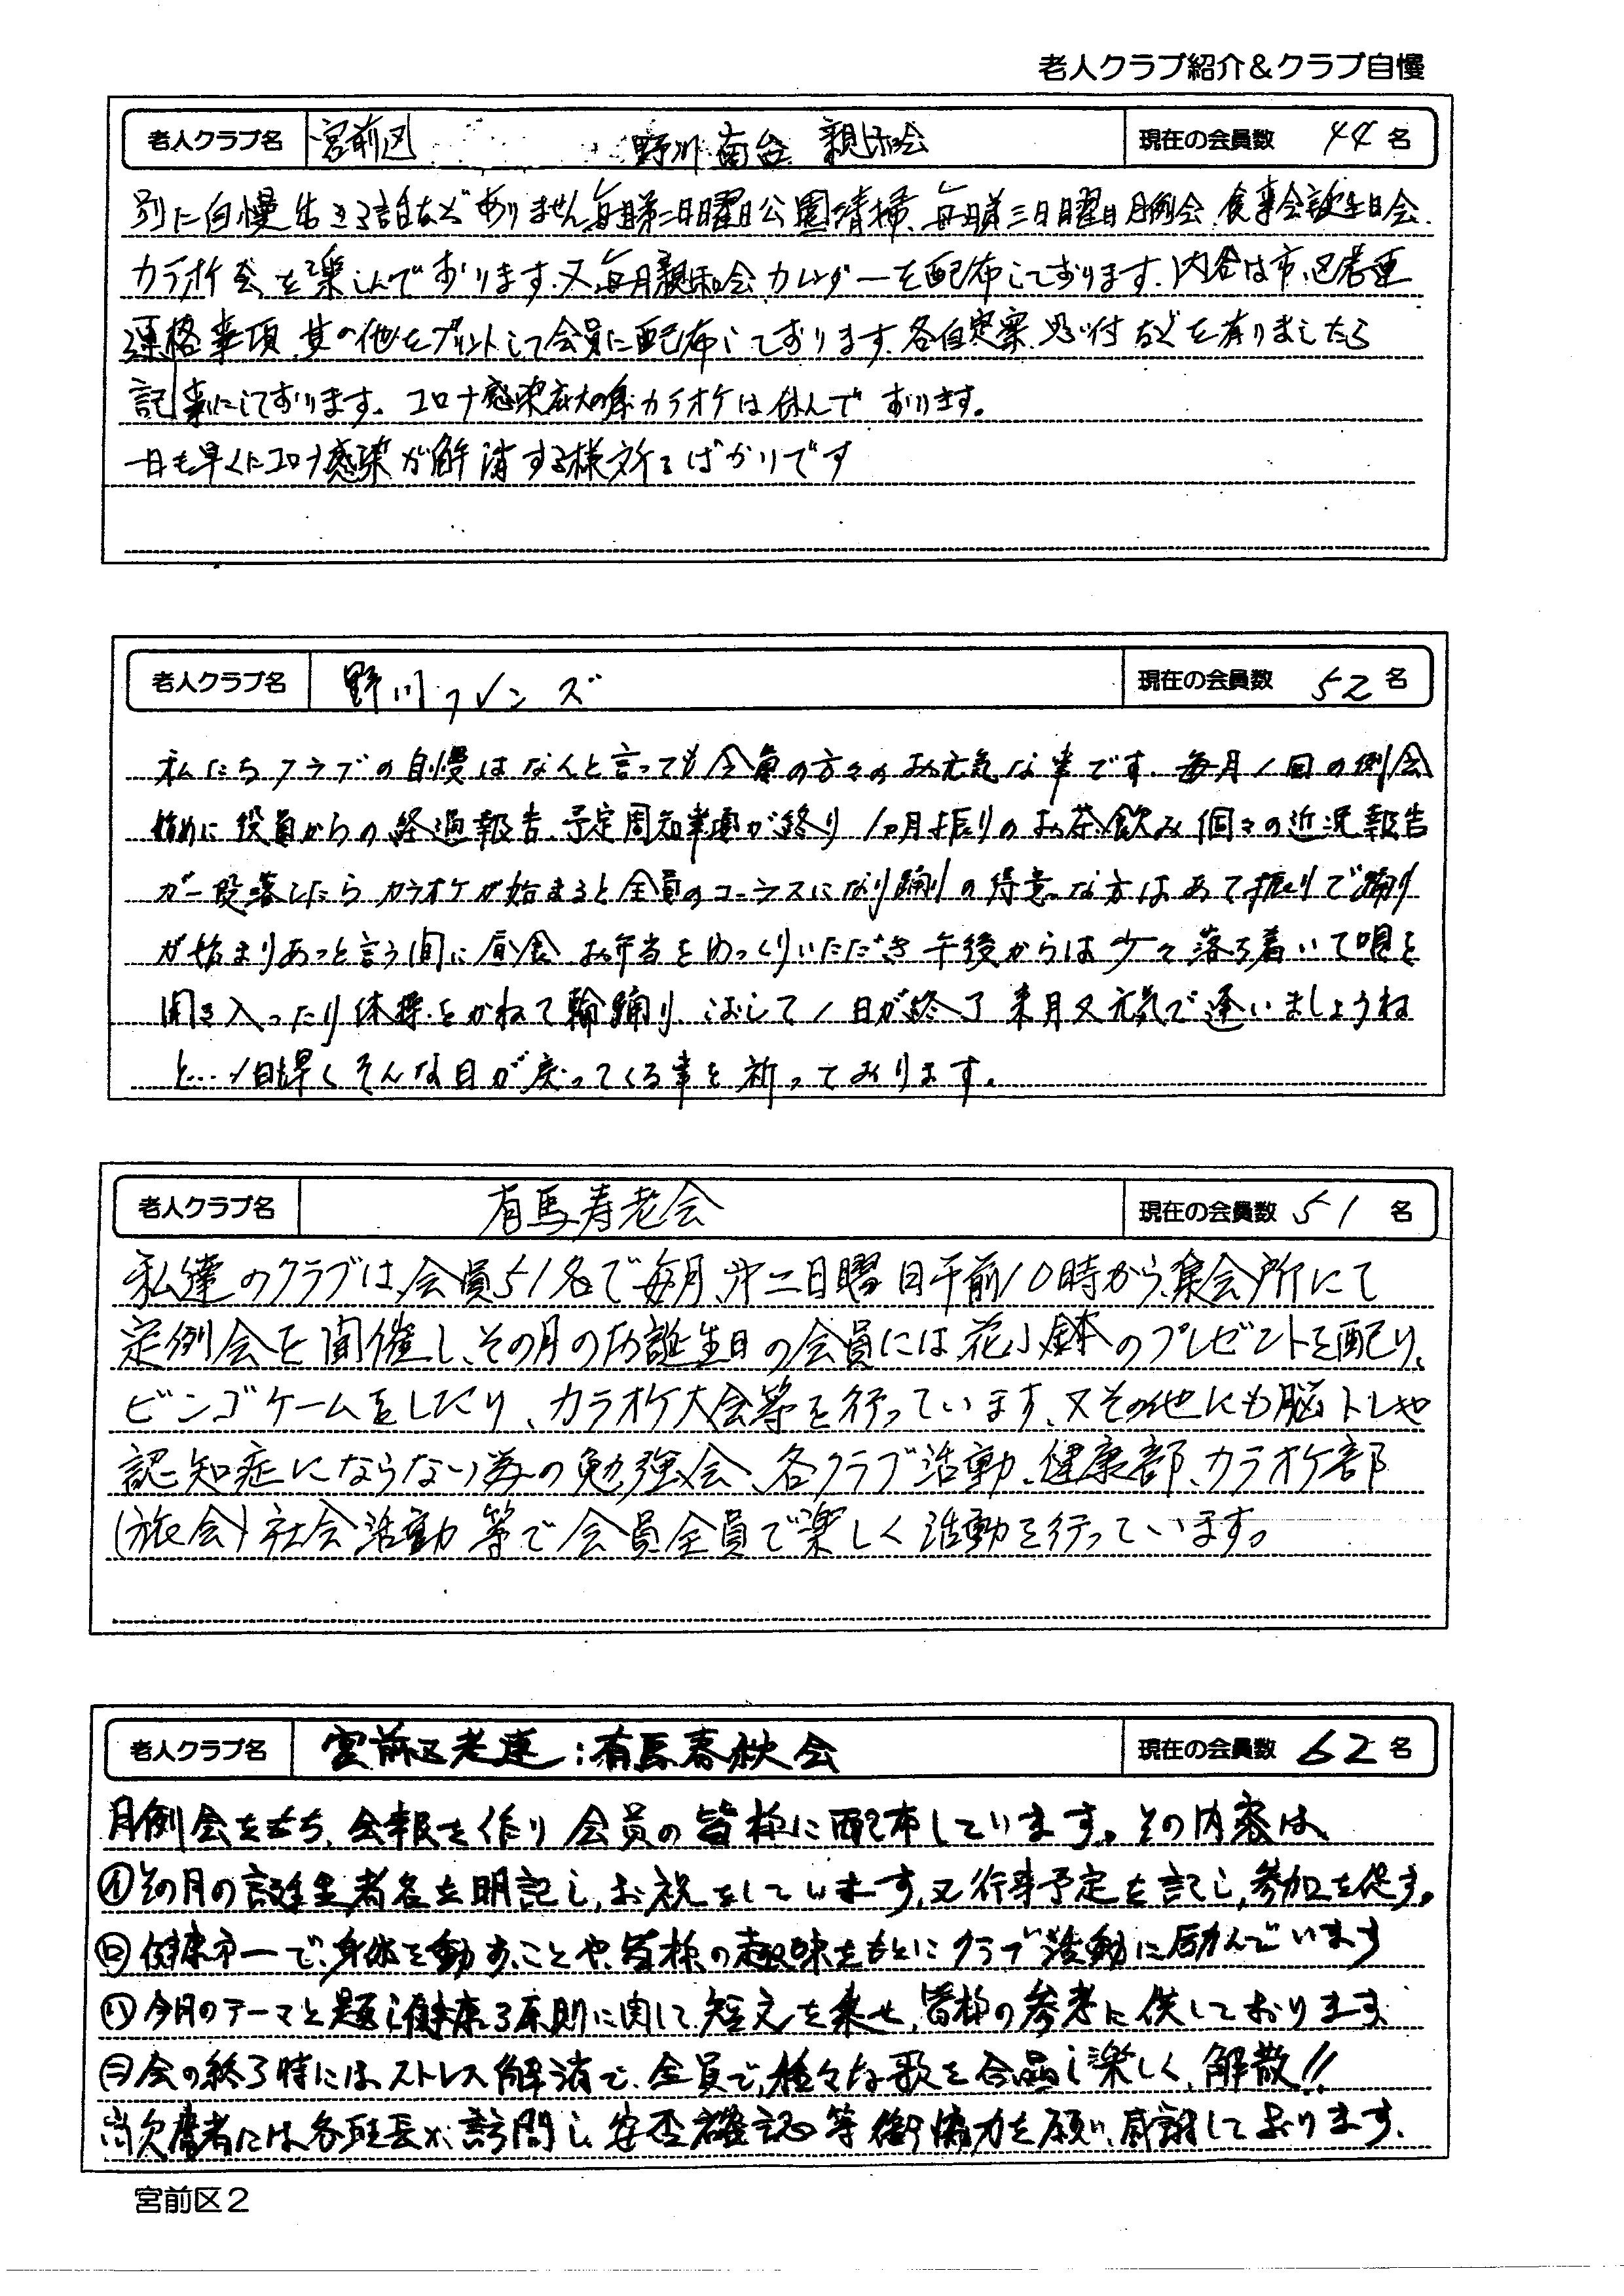 老人クラブ紹介＆クラブ自慢
老人クラブ名 宮前区 野川南台 親和会 現在の会員数 44名
別に自慢出きる話などありません毎月第二日曜日公園清掃、毎月第三日曜日月例会、食事会誕生日会、
カラオケ会を楽しんでおります。又毎月親和会カレンダーを配布しております。内容は市、区老連
連絡事項、其の他をプリントして会員に配布しております。各自定案、思い付などを有りましたら
記事にしております。コロナ感染拡大の為カラオケは休んでおります。
一日も早くにコロナ感染が解消する様祈るばかりです
老人クラブ名 野川フレンズ 現在の会員数 52名
私たちクラブの自慢はなんと言っても会員の方々のお元気な事です。毎月1回の例会
始めに役員からの経過報告、予定周知事項が終り1ヵ月振りのお茶飲み個々の近況報告
が一段落したらカラオケが始まると全員のコーラスになり踊りの得意な方はあて振りで踊り
が始まりあっと言う間に昼食 お弁当をゆっくりいただき午後からは少々落ち着いて唄を
聞き入ったり体操をかねて輪踊り、そして1日が終了 来月又元気で逢いましょうね
と…1日早くそんな日が戻ってくる事を祈っております。
老人クラブ名 有馬寿老会 現在の会員数 51名
私達のクラブは、会員51名で毎月、第二日曜日午前10時から、集会所にて
定例会を開催し、その月のお誕生日の会員には花小鉢のプレゼントを配り、
ビンゴゲームをしたり、カラオケ大会等を行っています、又その他にも脳トレや
認知症にならない為の勉強会、各クラブ活動、健康部、カラオケ部
(旅会)社会活動等で会員全員で楽しく活動を行っています。
老人クラブ名 宮前区老連：有馬春秋会 現在の会員数 62名
月例会をもち、会報を作り会員の皆様に配布しています。その内容は、
㋑その月の誕生者名を明記し、お祝をしています、又行事予定を記し、参加を促す。
㋺健康第一で、身体を動すことや、皆様の趣味をもとにクラブ活動に励んでいます
㋩今月のテーマと題し健康3原則に関して短文を乗せ、皆様の参考に供しております、
㋥会の終了時には、ストレス解消で、全員で、種々な歌を合唱し楽しく、解散!!
尚欠席者には各班長が、訪問し、安否確認等御協力を願い、感謝しております、
宮前区2